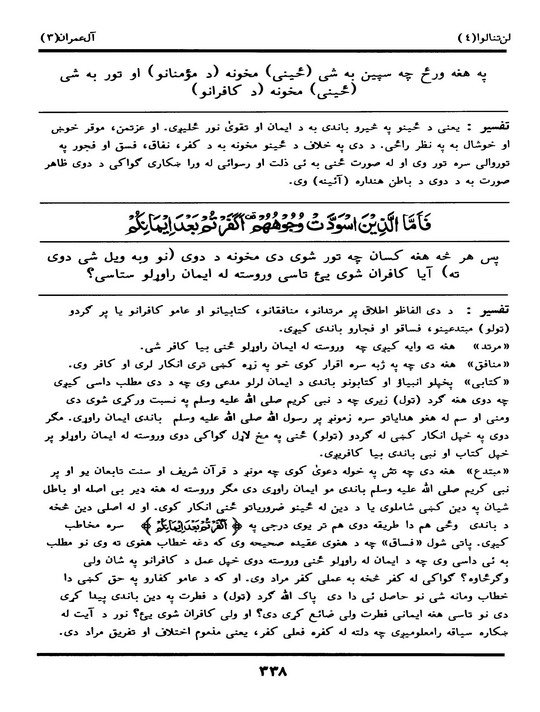 لن تنالوا (٤)
آل عمران (٣)
په هغه ورځ چه سپين به شي (ځيني) مخونه (د مؤمنانو) او تور به شي
(ځيني) مخونه (د کافرانو)
تفسير : يعنی د ځينو په څيرو باندی به د ايمان او تقویٰ نور ځليږی. او عزتمن، موقر خوښ
او خوشال به په نظر راځی. د دی په خلاف د ځينو مخونه به د کفر، نفاق، فسق او فجور په
توروالی سره تور وی او له صورت ځنی به ئی ذلت او رسوائی له ورا ښکاری ګواکی د دوی ظاهر
صورت به د دوی د باطن هنداره (آئينه) وی.
فَاَمَّا الَّذِيْنَ اسْوَدَّتْ وُجُوْهُهُمْ اَكَفَرْتُمْ بَعْدَ اِيْمَانِكُمْ
پس هر څه هغه کسان چه تور شوی دی مخونه د دوی (نو وبه ويل شی دوی
ته) آيا کافران شوی یئ تاسی وروسته له ايمان راوړلو ستاسی؟
تفسير : د دی الفاظو اطلاق پر مرتدانو، منافقانو، کتابيانو او عامو کافرانو يا پر ګردو
(تولو) مبتدعينو، فساقو او فجارو باندی کيږی.
«مرتد» هغه ته وايه کيږی چه وروسته له ايمان راوړلو ځنی بيا کافر شی.
«منافق» هغه دی چه په ژبه سره اقرار کوی خو په زړه کښی تری انکار لری او کافر وی.
«کتابی» پخپلو انبياؤ او کتابونو باندی د ايمان لرلو مدعی وی چه د دی مطلب داسی کيږی
چه دوی هغه ګرد (تول) زيری چه د نبی کريم صلی الله عليه وسلم په نسبت ورکړی شوی دی
ومنی او سم له هغو هداياتو سره زمونږ پر رسول الله صلی الله عليه وسلم باندی ايمان راوړی. مګر
دوی په خپل انکار کښی له ګردو (تولو) ځنی په مخ لاړل ګواکی دوی وروسته له ايمان راوړلو پر
خپل کتاب او نبی باندی بيا کافريږی.
«مبتدع» هغه دی چه تش په خوله دعویٰ کوی چه مونږ د قرآن شريف او سنت تابعان يو او پر
نبی کريم صلی الله عليه وسلم باندی مو ايمان راوړی دی مګر وروسته له هغه ډير بی اصله او باطل
شيان په دين کښی شاملوی يا د دين له ځينو ضرورياتو ځنی انکار کوی. او له اصلی دين څخه
د باندی وځی هم دا طريقه دوی هم تر يوی درجی په ﴿ اَكَفَرْتُمْ بَعْدَ اِيْمَانِكُمْ ﴾ سره مخاطب
کيږی. پاتی شول «فساق» چه د هغوی عقيده صحيحه وی که دغه خطاب هغوی ته وی نو مطلب
به ئی داسی وی چه د ايمان له راوړلو ځنی وروسته دوی خپل عمل د کافرانو په شان ولی
وګرځاوه؟ ګواکی له کفر څخه به عملی کفر مراد وی. او که د عامو کفارو په حق کښی دا
خطاب ومانه شی نو حاصل ئی دا دی پاک الله ګرد (تول) د فطرت په دين باندی پيدا کړی
دی نو تاسی هغه ايمانی فطرت ولی ضائع کړی دی؟ او ولی کافران شوی یئ؟ نور د آيت له
ښکاره سياقه رامعلوميږی چه دلته له کفره فعلی کفر، يعنی مذموم اختلاف او تفريق مراد دی.
٣٣٨